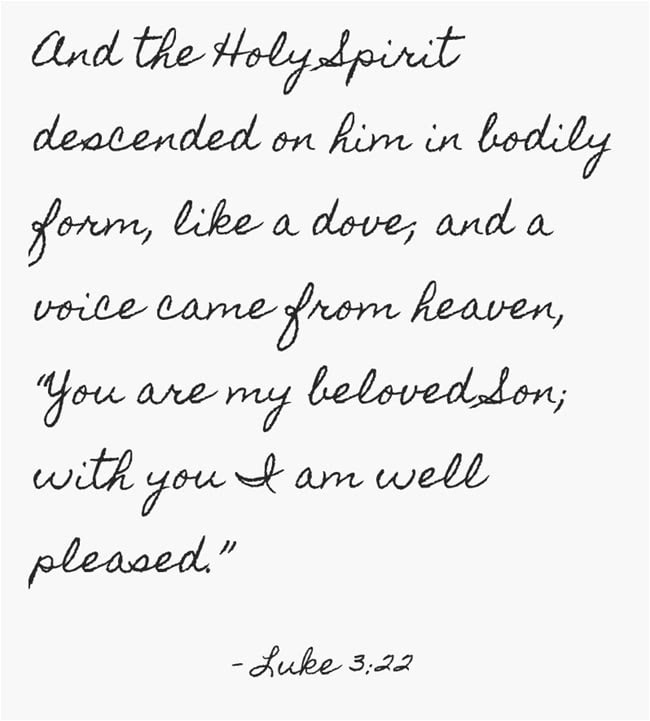 And the Holy Spirit
descended on him in bodily
form, like a dove; and a
voice came from heaven,
“You are my beloved Son;
with you I am well
pleased.”
- Luke 3:22